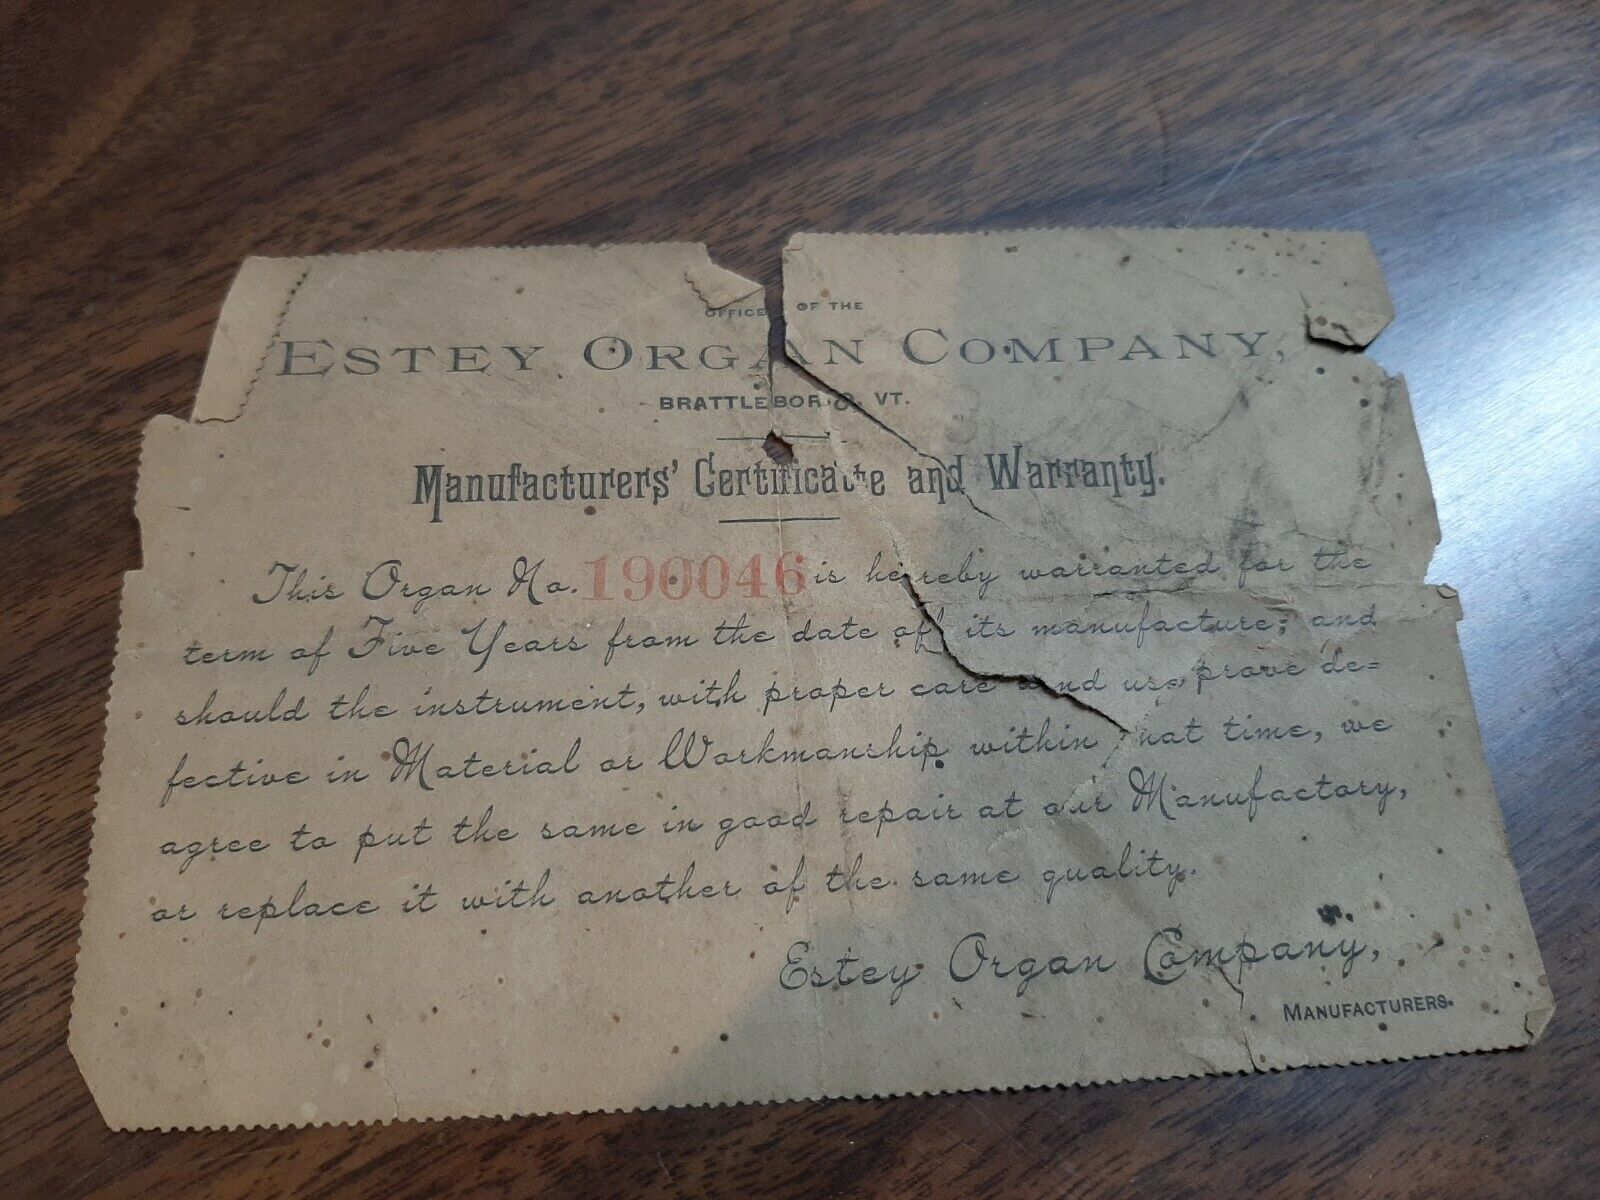 OFFICE OF THE
ESTEY ORGAN COMPANY,
BRATTLEBORO, VT.
Manufacturers' Certificate and Warranty.
This Organ No. 190046 is hereby warranted for the
term of Five Years from the date of its manufacture; and
should the instrument, with proper care and use, prove de=
fective in Material or Workmanship within that time, we
agree to put the same in good repair at our Manufactory,
or replace it with another of the same quality.
Estey Organ Company,
MANUFACTURERS.